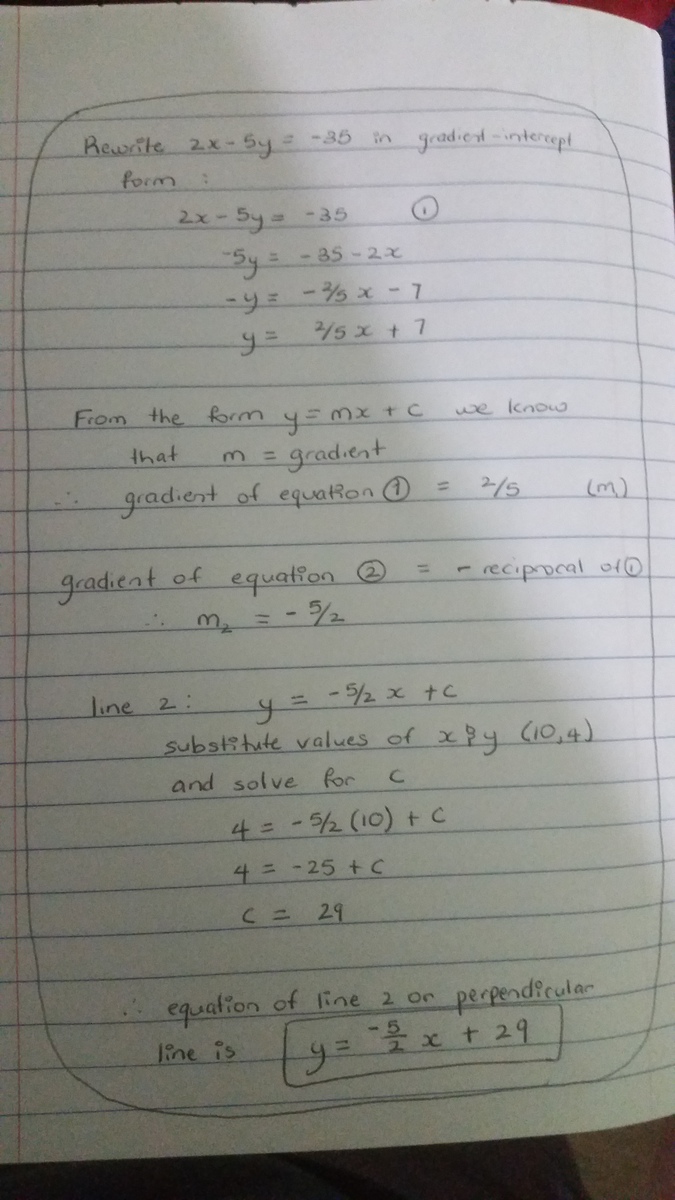 Rewrite 2x - 5y = -35 in gradient-intercept
form :
2x - 5y = -35 ①
-5y = -35 - 2x
-y = -2/5 x - 7
y = 2/5 x + 7
From the form y = mx + c we know
that m = gradient
∴ gradient of equation ① = 2/5 (m)
gradient of equation ② = - reciprocal of ①
∴ m₂ = - 5/2
line 2 : y = -5/2 x + c
substitute values of x & y (10,4)
and solve for c
4 = -5/2 (10) + c
4 = -25 + c
c = 29
∴ equation of line 2 or perpendicular
line is y = -5/2 x + 29